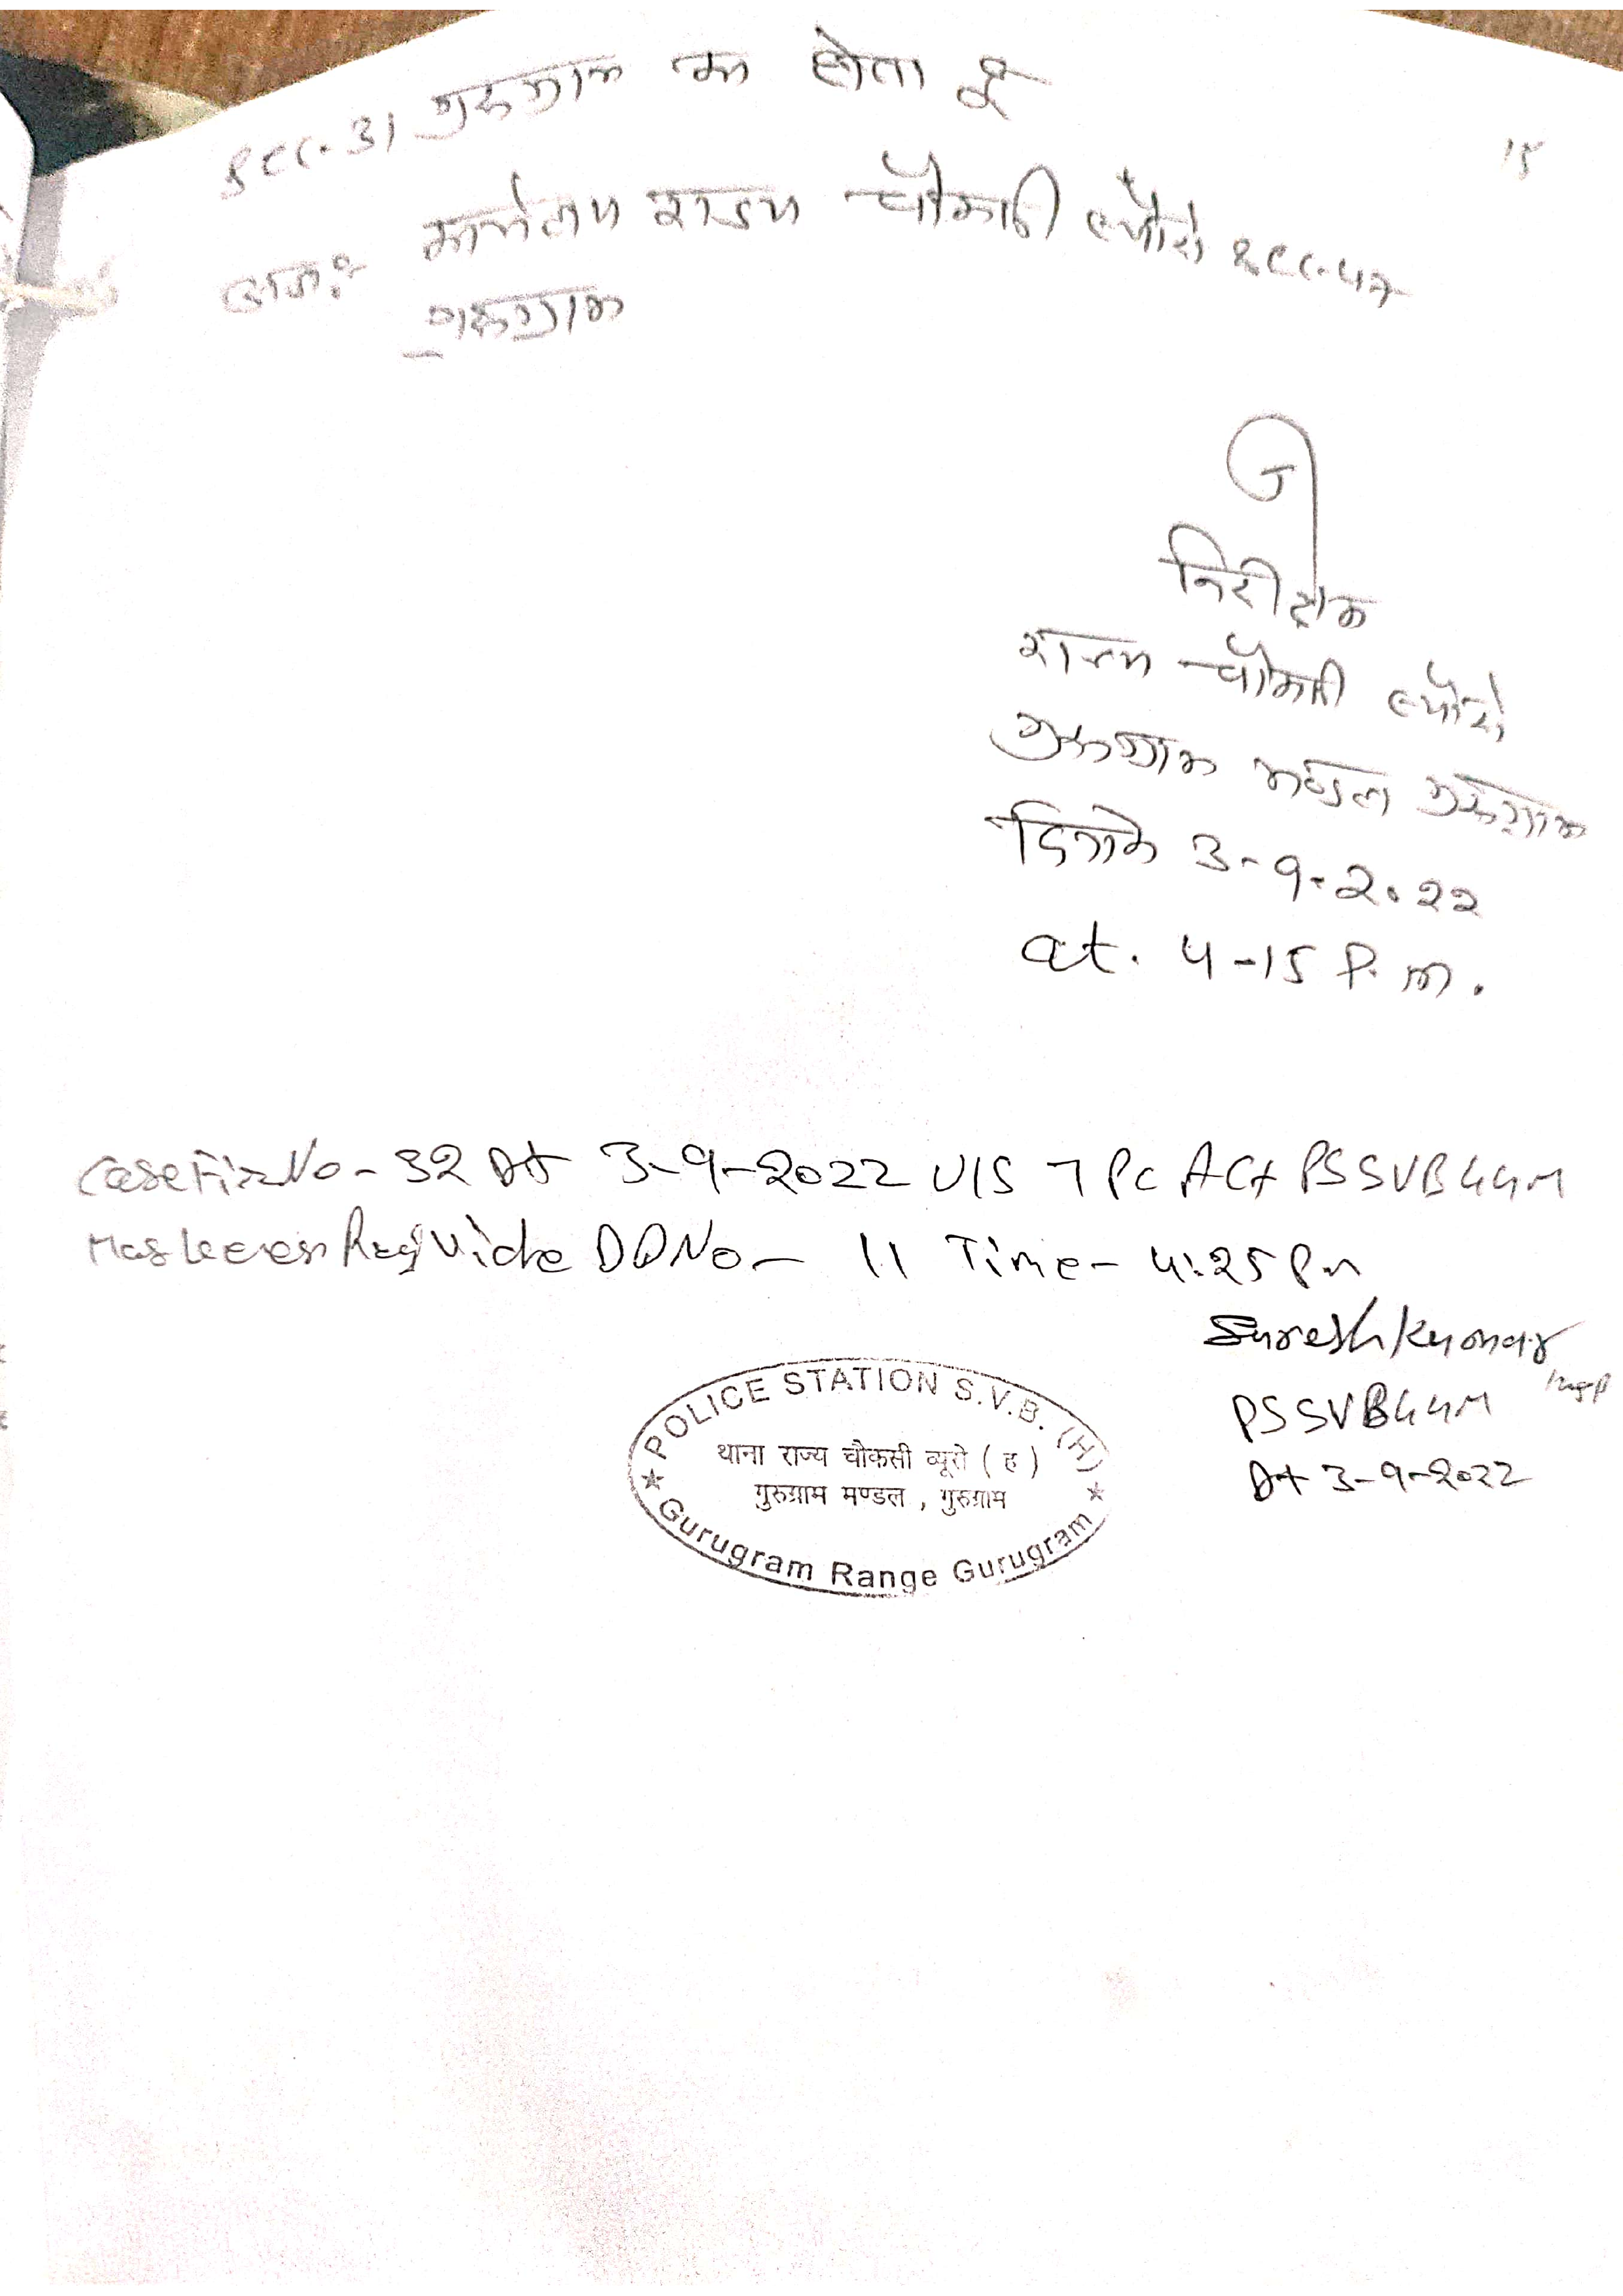 15
Sec. 31 गुरुग्राम का होता है
अज: कार्यालय राज्य चौकसी ब्यूरो Sec. 47
गुरुग्राम
निरीक्षक
राज्य चौकसी ब्यूरो
गुरुग्राम मण्डल गुरुग्राम
दिनांक 3-9-2022
at. 4-15 P.m.
Case Fir No- 32 Dt 3-9-2022 U/S 7 PC Act PSSVBGGM
Has been Reg Vide DDNo- 11 Time- 4:25 Pm
Suresh Kumar
Insp
PSSVBGGM
Dt 3-9-2022
POLICE STATION S.V.B. (H)
थाना राज्य चौकसी ब्यूरो ( ह )
गुरुग्राम मण्डल , गुरुग्राम
Gurugram Range Gurugram